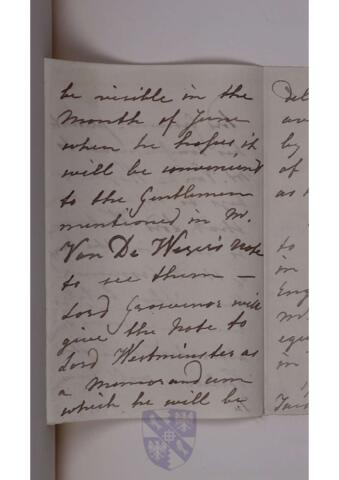 be visible in the
Month of June
when he hopes it
will be convenient
to the Gentlemen
mentioned in M.
Van De Weyer's note
to see them —
Lord Grosvenor will
give the note to
Lord Westminster as
a Memorandum
which he will be
Del
by
of
as
to
in
Eng
M
equ
in